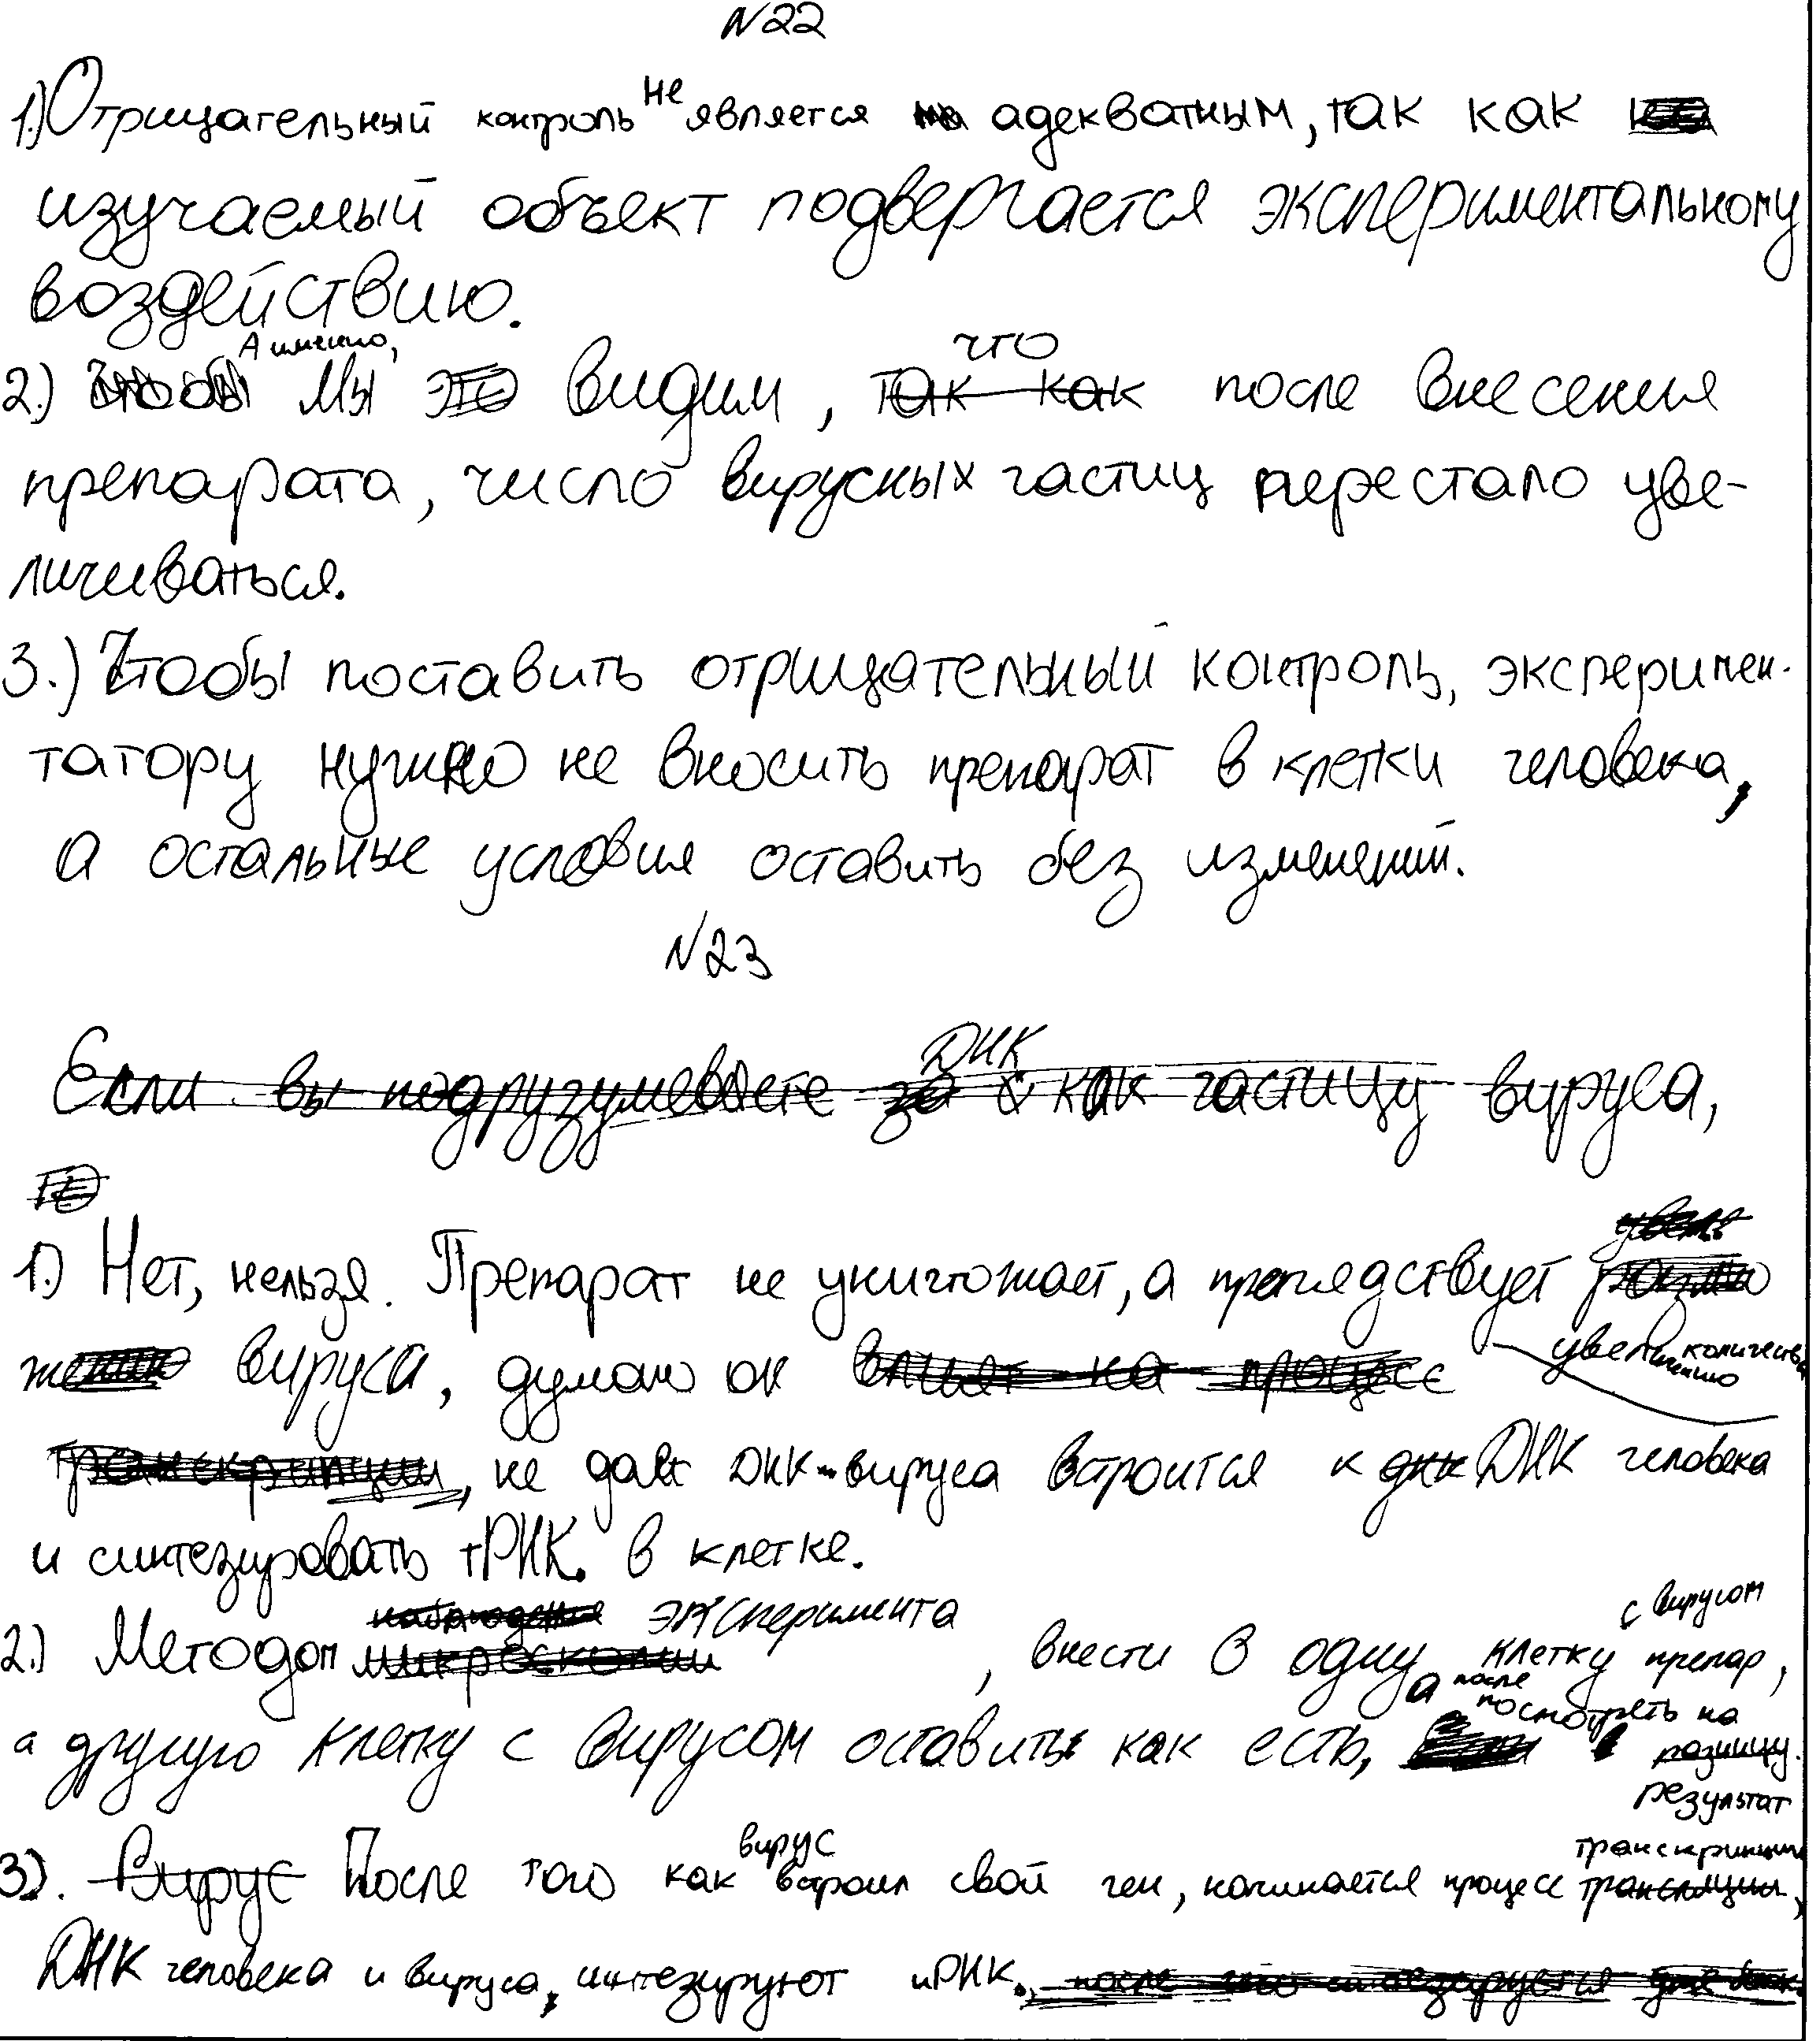 N22
1.) Отрицательный контроль не является адекватным, так как
изучаемый объект подвергается экспериментальному
воздействию.
2.) А именно, Мы видим, что после внесения
препарата, число вирусных частиц перестало уве-
личиваться.
3.) Чтобы поставить отрицательный контроль, эксперимен-
татору нужно не вносить препарат в клетки человека,
а остальные условия оставить без изменений.
N23
Если вы подрузумеваете ДНК как частицу вируса,
то
1.) Нет, нельзя. Препарат не уничтожает, а препядствует увеличению количества
вируса, думаю он влияет на процесс
транскрипции, не даёт ДНК-вируса встроится к ДНК человека
и синтезировать тРНК. в клетке.
2.) Методом эксперимента, внести в одну клетку с вирусом препар,
а другую клетку с вирусом оставить как есть, а после посмотреть на
результат
3). Вирус После того как вирус встроил свой ген, начинается процесс транскрипции,
ДНК человека и вируса, интезируют иРНК.